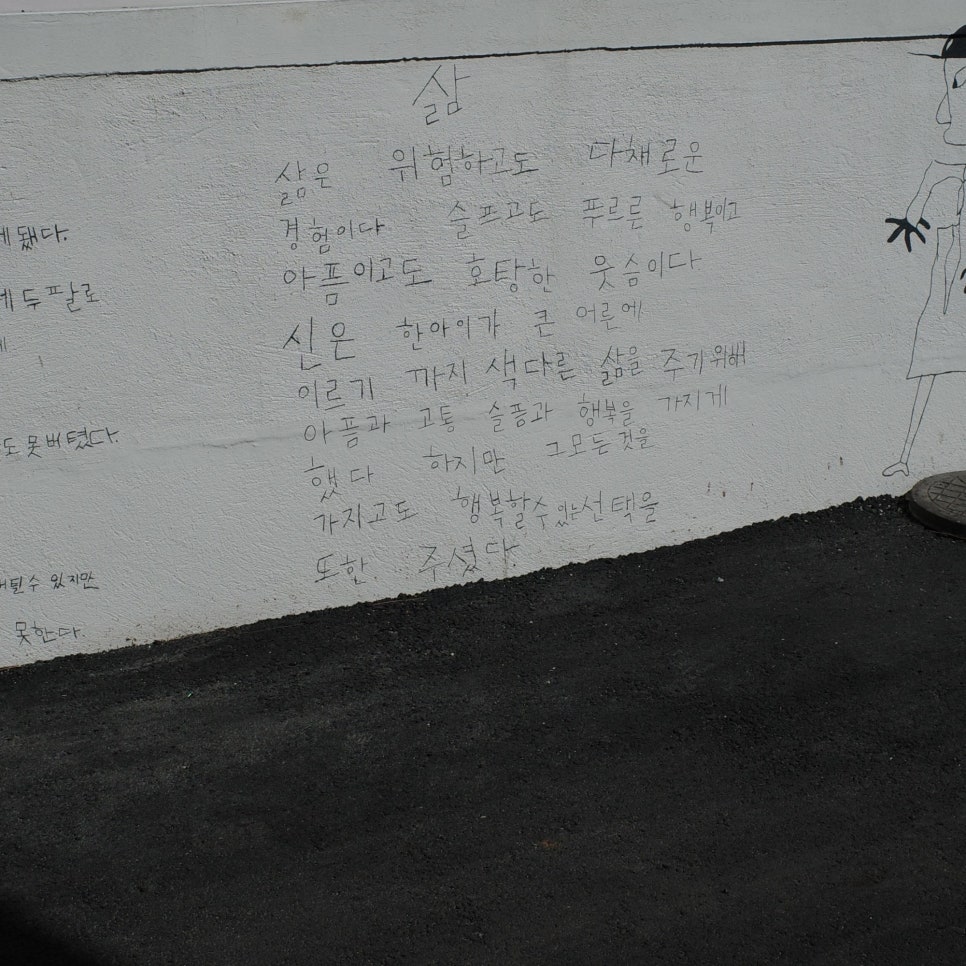 게 됐다.
두 팔로
도 못버텼다.
될수 있지만
못한다.
삶
삶은 위험하고도 다채로운
경험이다 슬프고도 푸르른 행복이고
아픔이고도 호탕한 웃슴이다
신은 한아이가 큰 어른에
이르기 까지 색다른 삶을 주기위해
아픔과 고통 슬픔과 행복을 가지게
했다 하지만 그모든것을
가지고도 행복할수있는선택을
또한 주셨다